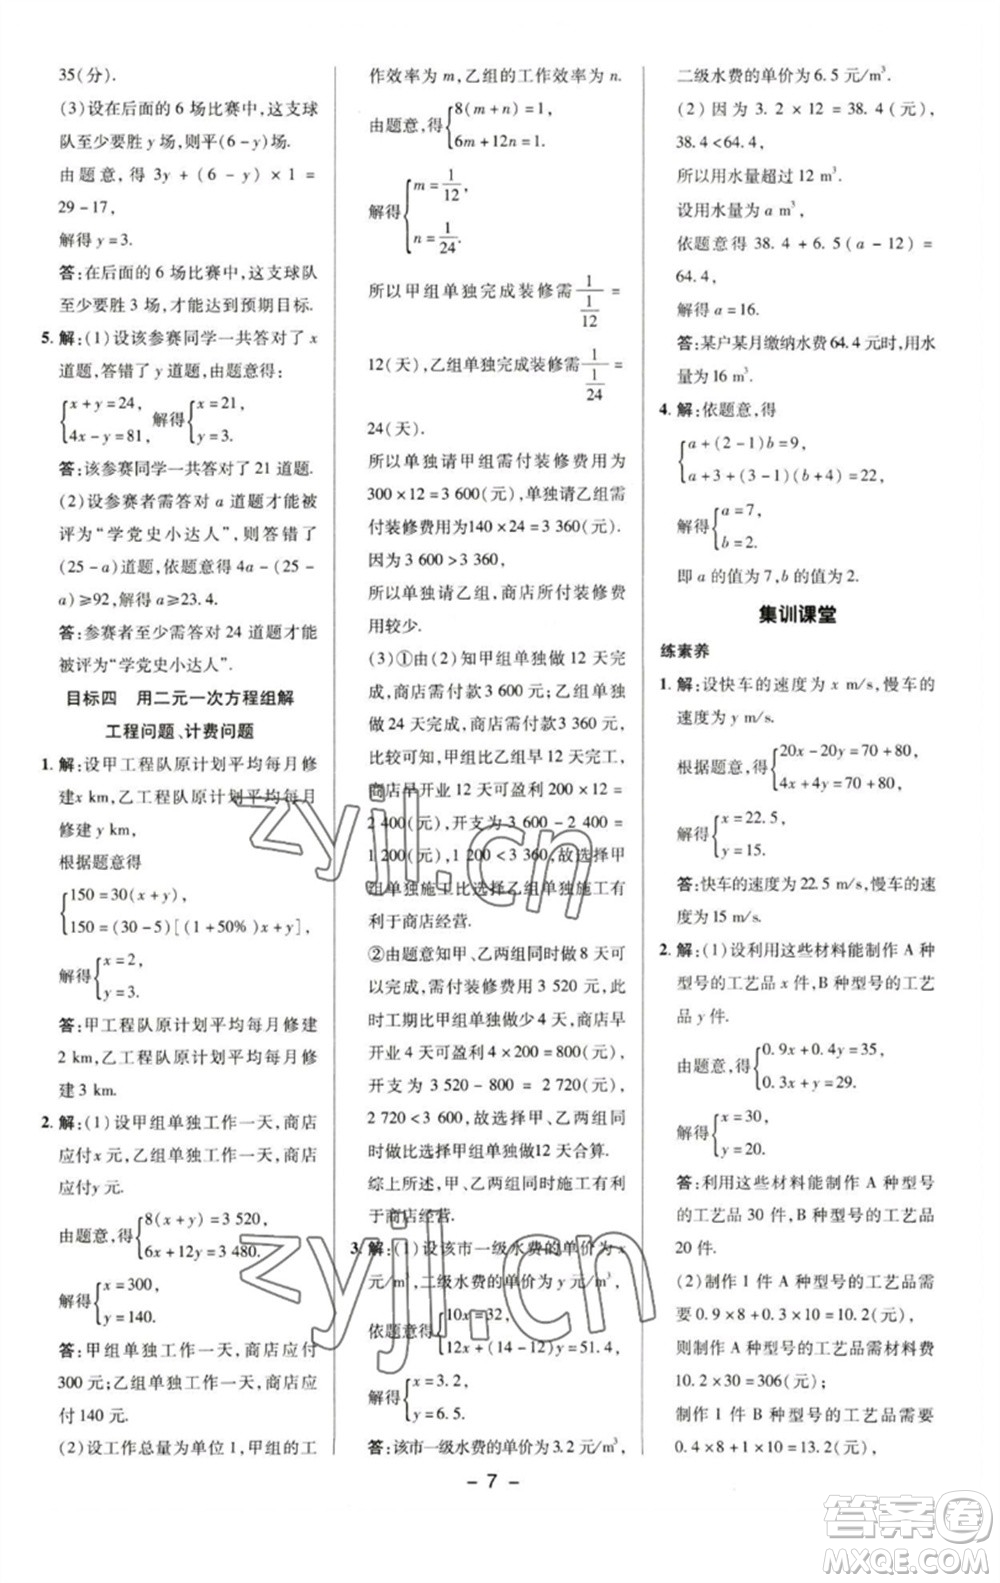 35(分).
(3)设在后面的 6 场比赛中,这支球
队至少要胜 y 场,则平(6-y)场.
由题意,得 3y+(6-y)×1=
29-17,
解得 y=3.
答:在后面的 6 场比赛中,这支球队
至少要胜 3 场,才能达到预期目标.
5. 解:(1)设该参赛同学一共答对了 x
道题,答错了 y 道题,由题意得:
{x+y=24, 解得{x=21,
4x-y=81, y=3.
答:该参赛同学一共答对了 21 道题.
(2)设参赛者需答对 a 道题才能被
评为“学党史小达人”,则答错了
(25-a)道题,依题意得 4a-(25-
a)≥92,解得 a≥23.4.
答:参赛者至少需答对 24 道题才能
被评为“学党史小达人”.
目标四 用二元一次方程组解
工程问题、计费问题
1. 解:设甲工程队原计划平均每月修
建x km,乙工程队原计划平均每月
修建 y km,
根据题意得
{150=30(x+y),
150=(30-5)[(1+50%)x+y],
解得{x=2,
y=3.
答:甲工程队原计划平均每月修建
2 km,乙工程队原计划平均每月修
建 3 km.
2. 解:(1)设甲组单独工作一天,商店
应付x 元,乙组单独工作一天,商店
应付y 元.
由题意,得{8(x+y)=3 520,
6x+12y=3 480.
解得{x=300,
y=140.
答:甲组单独工作一天,商店应付
300 元;乙组单独工作一天,商店应
付 140 元.
(2)设工作总量为单位 1,甲组的工
作效率为 m,乙组的工作效率为 n.
由题意,得{8(m+n)=1,
6m+12n=1.
解得{m=1/12,
n=1/24.
所以甲组单独完成装修需 1/(1/12) =
12(天),乙组单独完成装修需 1/(1/24) =
24(天).
所以单独请甲组需付装修费用为
300×12=3 600(元),单独请乙组需
付装修费用为140×24=3 360(元).
因为 3 600>3 360,
所以单独请乙组,商店所付装修费
用较少.
(3)①由(2)知甲组单独做 12 天完
成,商店需付款 3 600 元,乙组单独
做 24 天完成,商店需付款 3 360 元,
比较可知,甲组比乙组早 12 天完工,
商店早开业 12 天可盈利 200×12=
2 400(元),开支为 3 600-2 400=
1 200(元),1 200<3 360,故选择甲
组单独施工比选择乙组单独施工有
利于商店经营.
②由题意知甲、乙两组同时做 8 天可
完成,需付装修费用为 3 520 元,此
时工期比甲组单独做少 4 天,商店早
开业 4 天可盈利 4×200=800(元),
开支为 3 520-800=2 720(元),
2 720<3 600,故选择甲、乙两组同
时做比选择甲组单独做12 天合算.
综上所述,甲、乙两组同时施工有利
于商店经营.
3. 解:(1)设该市一级水费的单价为 x
元/m³,二级水费的单价为 y 元/m³,
依题意得{10x=32,
12x+(14-12)y=51.4,
解得{x=3.2,
y=6.5.
答:该市一级水费的单价为3.2 元/m³,
二级水费的单价为 6.5 元/m³.
(2)因为 3.2×12=38.4(元),
38.4<64.4,
所以用水量超过 12 m³.
设用水量为 a m³,
依题意得 38.4+6.5(a-12)=
64.4,
解得 a=16.
答:某户某月缴纳水费 64.4 元时,用水
量为 16 m³.
4. 解:依题意,得
{a+(2-1)b=9,
a+3+(3-1)(b+4)=22,
解得{a=7,
b=2.
即 a 的值为 7,b 的值为 2.
集训课堂
练素养
1. 解:设快车的速度为 x m/s,慢车的
速度为 y m/s.
根据题意,得{20x-20y=70+80,
4x+4y=70+80,
解得{x=22.5,
y=15.
答:快车的速度为 22.5 m/s,慢车的速
度为 15 m/s.
2. 解:(1)设利用这些材料能制作 A 种
型号的工艺品 x 件,B 种型号的工艺
品 y 件.
由题意,得{0.9x+0.4y=35,
0.3x+y=29.
解得{x=30,
y=20.
答:利用这些材料能制作 A 种型号
的工艺品 30 件,B 种型号的工艺品
20 件.
(2)制作 1 件 A 种型号的工艺品需
要 0.9×8+0.3×10=10.2(元),
则制作 A 种型号的工艺品需材料费
10.2×30=306(元);
制作 1 件 B 种型号的工艺品需要
0.4×8+1×10=13.2(元),
- 7 -
zyjl.cn
zyjl.cn
答案圈
MXQE.COM